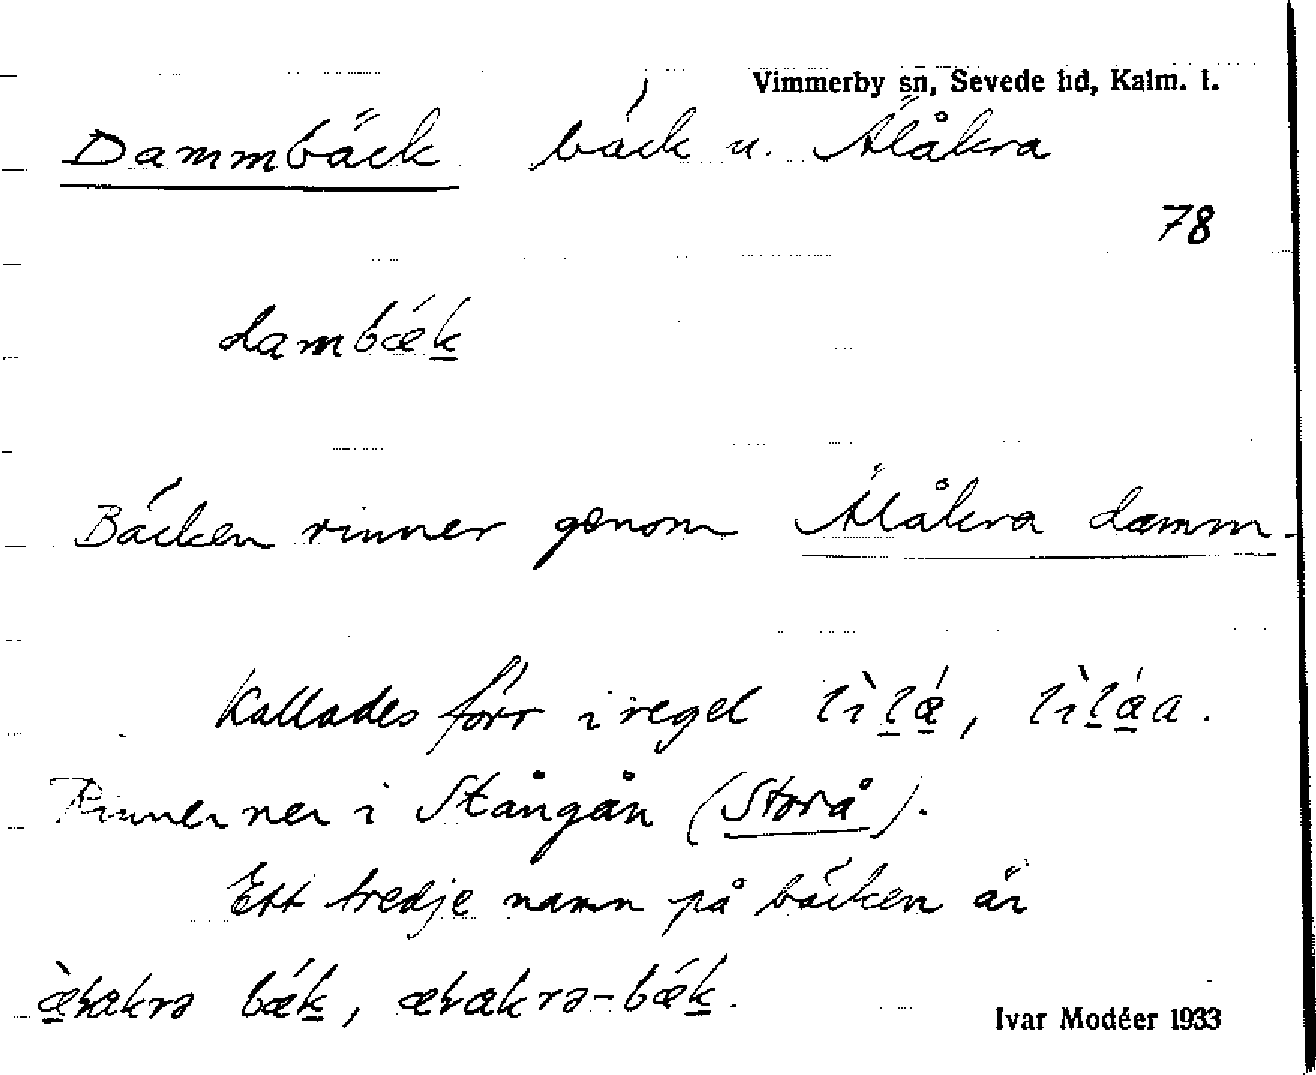 Vimmerby sn, Sevede hd, Kalm. l.
Dammbäck bäck u. Älåkra
78
dambǽk̲
Bäcken rinner genom Älåkra damm.
Kallades förr i regel
Rinner ner i Stångån (Storå).
Ett tredje namn på bäcken är
bǽk̲,
Ivar Modéer 1933